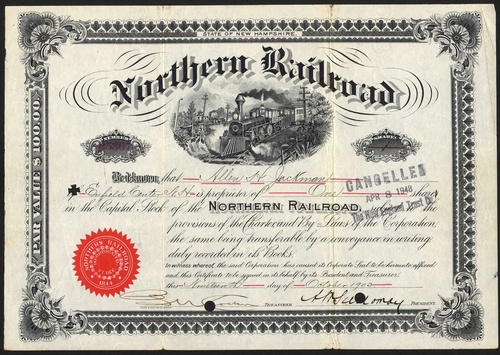 STATE OF NEW HAMPSHIRE.
Northern Railroad
PAR VALUE $100.00
NUMBER
Be it known, that Allen H. Jackman
of Enfield Center N.H. is proprietor of One shares
in the Capital Stock of the NORTHERN RAILROAD,
CANCELLED
APR 8 1948
The New England Trust Co.
the provisions of the Charter and By Laws of the Corporation,
the same being transferable by a conveyance in writing
duly recorded in its Books.
In witness whereof, the said Corporation has caused its Corporate Seal to be hereunto affixed
and this Certificate to be signed in its behalf by its President and Treasurer.
this Nineteenth day of October 1903
NORTHERN RAILROAD
1844
TREASURER
PRESIDENT